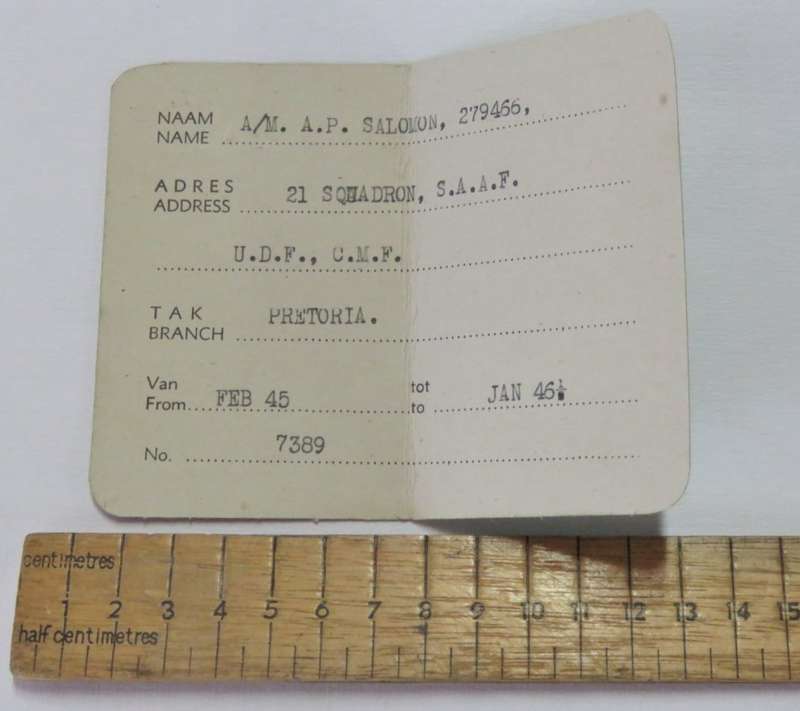 NAAM
NAME A/M. A.P. SALOMON, 279466,
ADRES
ADDRESS 21 SQUADRON, S.A.A.F.
U.D.F., C.M.F.
TAK
BRANCH PRETORIA.
Van tot
From FEB 45 to JAN 46
No. 7389
centimetres
1 2 3 4 5 6 7 8 9 10 11 12 13 14 15
half centimetres